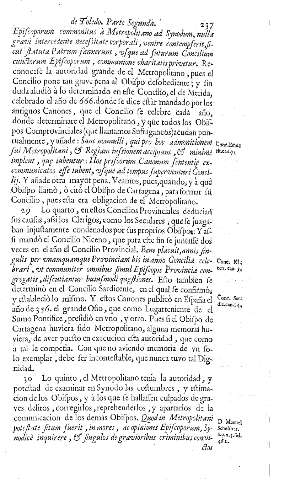 de Toledo. Parte Segunda. 237
Episcoporum commonitus à Metropolitano ad Synodum, nulla
gravi intercedente necessitate corporali, venire contempserit, si-
cut statuta Patrum sanxerunt, usque ad futurum Concilium
cunctorum Episcoporum, communione charitatis privetur. Re-
conocese la autoridad grande de el Metropolitano, pues el
Concilio pone tan grave pena al Obispo desobediente; y sin
duda aludiò à lo determinado en este Concilio, el de Merida,
celebrado el año de 666. donde se dice estàr mandado por los
antiguos Canones, que el Concilio se celebre cada año,
donde determinare el Metropolitano, y que todos los Obis-
pos Comprovinciales (que llamamos Sufraganeos) acudan pun-
tualmente, y añade: Sunt nonnulli, qui pro hoc admonitionem
sui Metropolitani, & Regiam iussionem accipiunt, & minimè
implent, quæ iubentur: Hos priscorum Canonum sententia ex-
communicatos esse iubent, usque ad tempus superventuri Conci-
lij. Y añade otra mayor pena. Veamos, pues, quando, y à què
Obispo llamò, ò citò el Obispo de Cartagena, para formar su
Concilio, pues esta era obligacion de el Metropolitano.
29 Lo quarto, en estos Concilios Provinciales deducian
sus causas, assi los Clerigos, como los Seculares, que se juzga-
ban injustamente condenados por sus proprios Obispos: Y assi
mandò el Concilio Niceno, que para este fin se juntasse dos
veces en el año el Concilio Provincial. Bene placuit, annis sin-
gulis per unamquamque Provinciam bis in anno Concilia cele-
brari, ut communiter omnibus simul Episcopis Provinciæ con-
gregatis, discutiantur huiusmodi quæstiones. Esto tambien se
determinò en el Concilio Sardicense, en el qual se confirmò,
y estableciò lo mismo. Y estos Canones publicò en España el
año de 356. el grande Osio, que como Lugarteniente de el
Sumo Pontifice, presidiò en uno, y otro. Pues si el Obispo de
Cartagena huviera sido Metropolitano, alguna memoria hu-
viera, de aver puesto en execucion esta autoridad, que como
à tal le competia. Con que no aviendo memoria de un so-
lo exemplar, debe ser incontestable, que nunca tuvo tal Dig-
nidad.
30 Lo quinto, el Metropolitano tenia la autoridad, y
potestad de examinar en Synodo las costumbres, y estima-
cion de los Obispos, y à los que se hallassen culpados de gra-
ves delitos, corregirlos, reprehenderlos, y apartarlos de la
comunicacion de los demàs Obispos. Quod in Metropolitani
potestate situm fuerit, in mores, ac opiniones Episcoporum, Sy-
nodicè inquirere, & singulos de gravioribus criminibus convi-
ctus